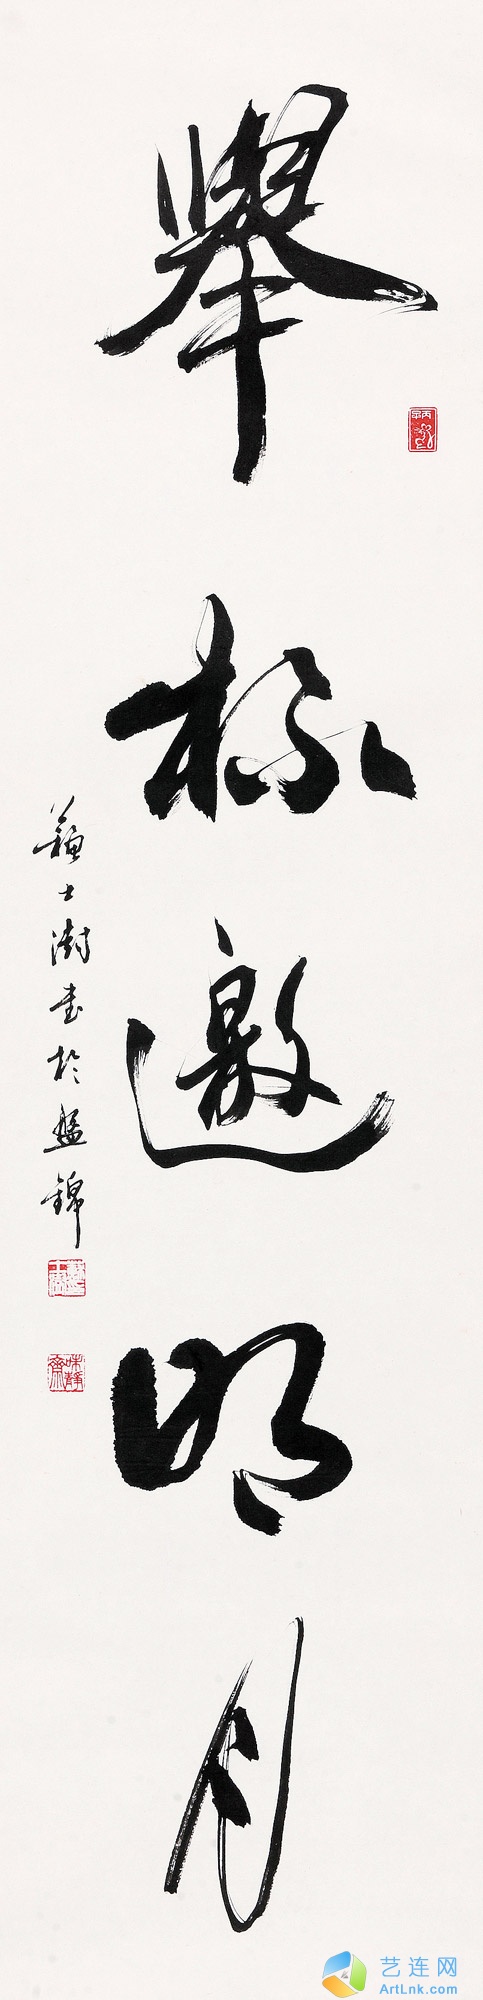 舉杯邀明月
蘇士澍書於盤錦
艺连网
ArtLnk.com